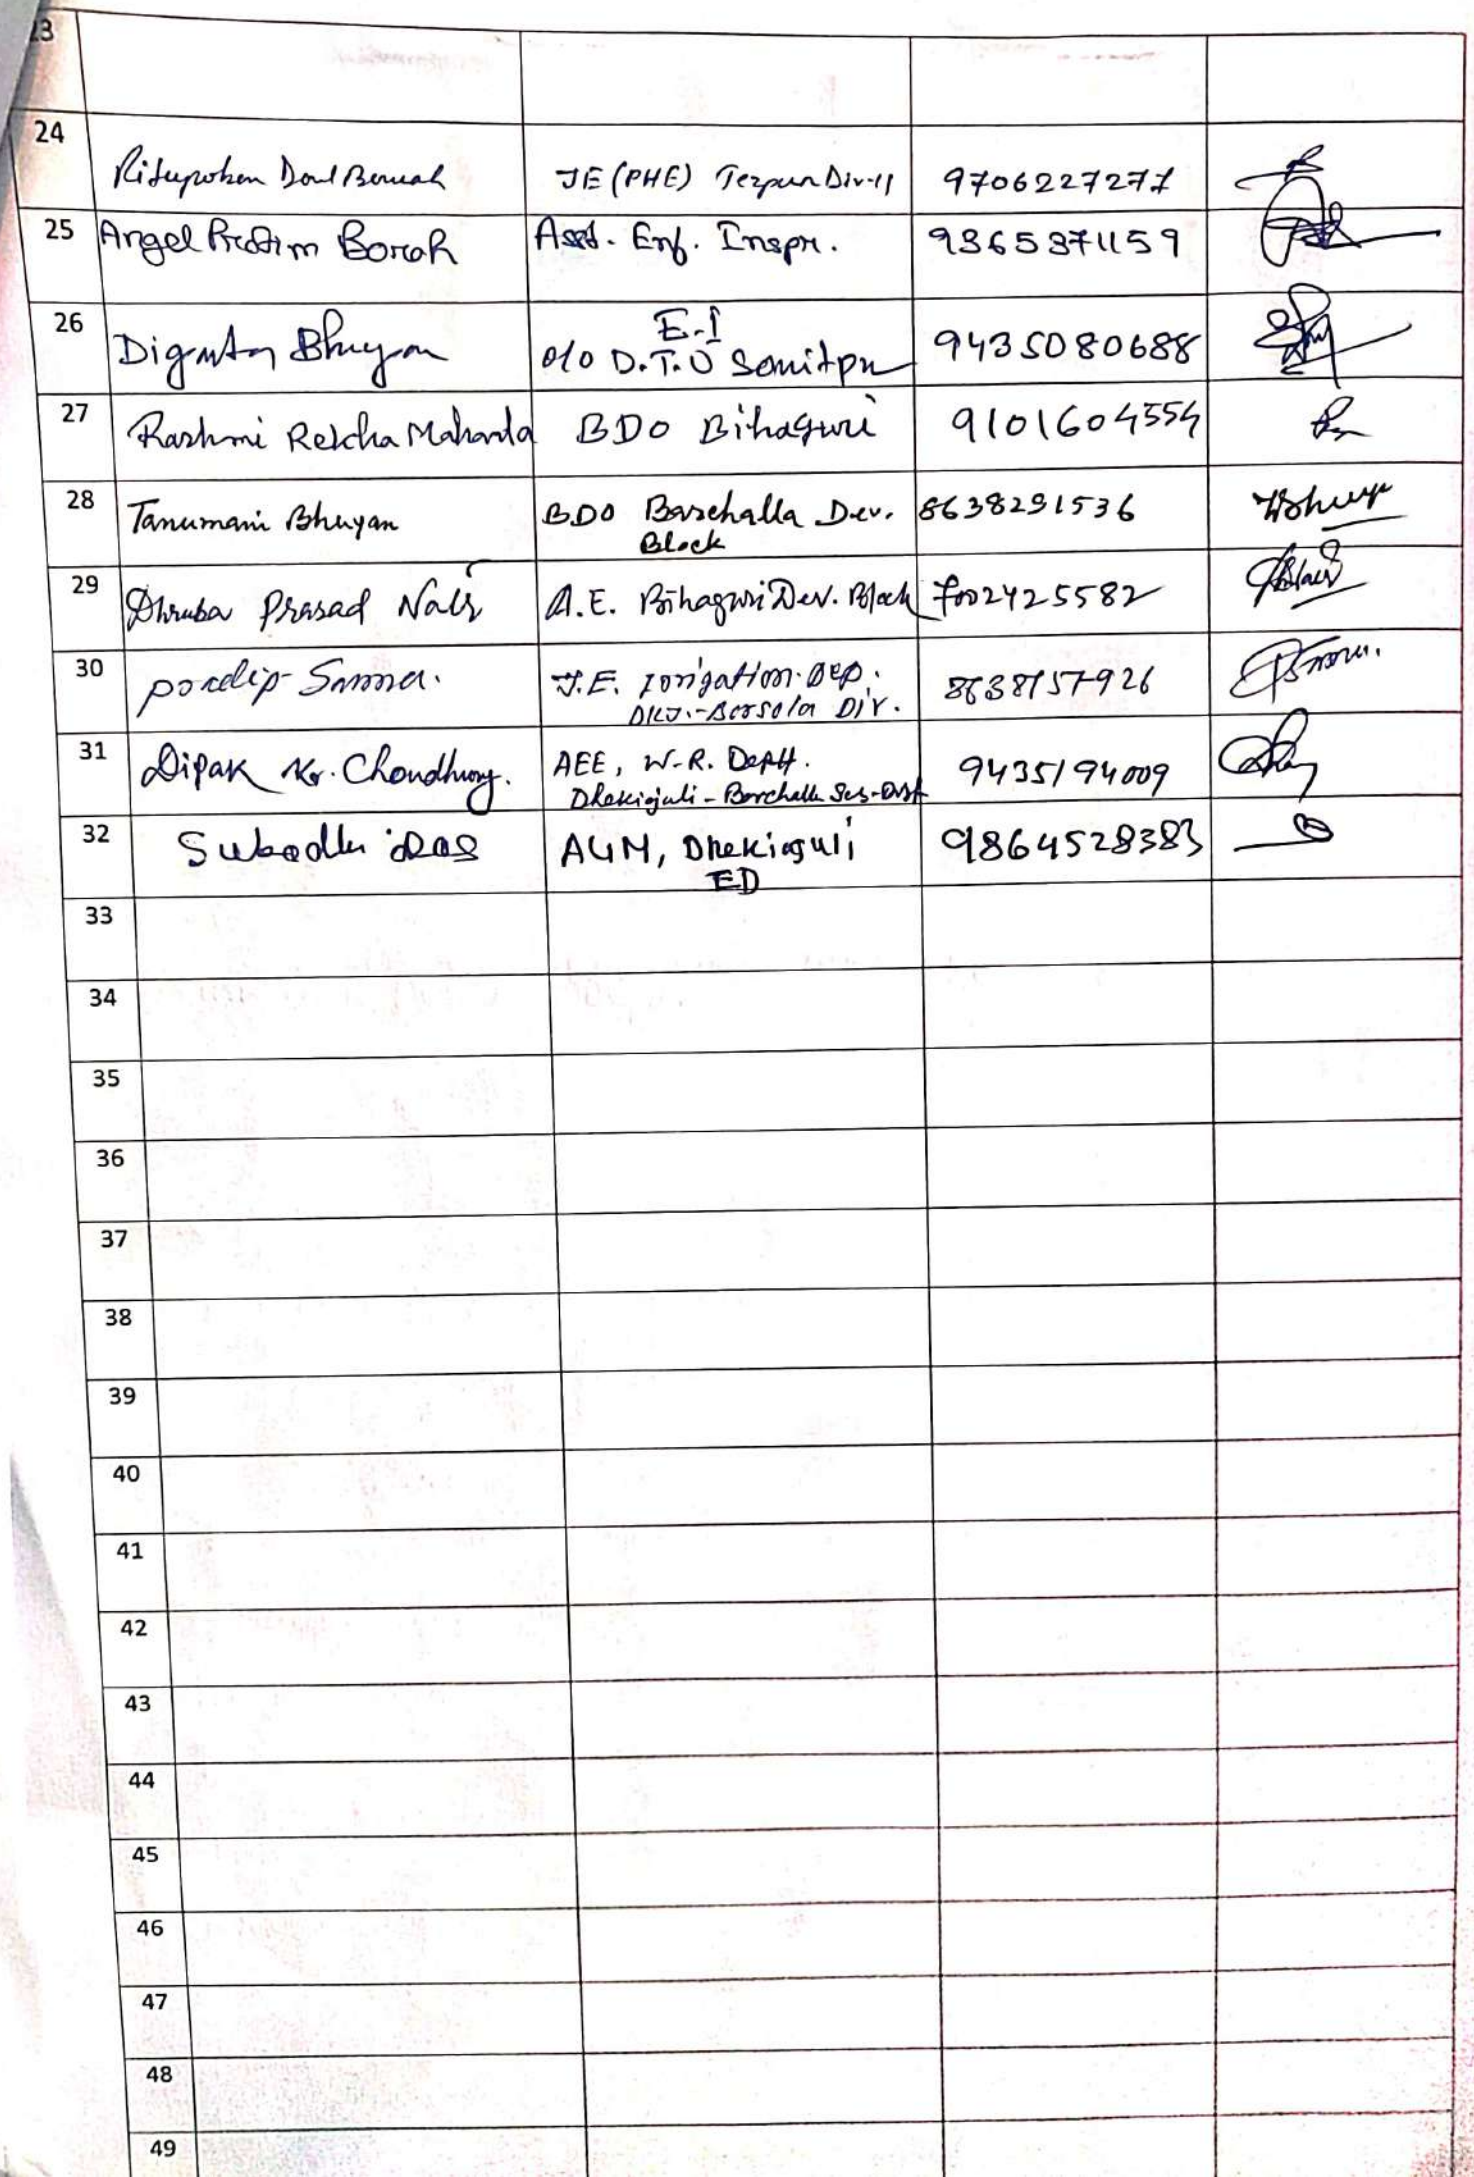 23
24 JE (PHE) Tezpur Div-II 9706227277
25 Angel Pratim Borah Asst. Enf. Inspr. 9365371159
26 Diganta Bhuyan E.I
o/o D.T.O Sonitpur 9435080688
27 Rashmi Rekha Mahanta BDO Bihaguri 9101604554
28 Tanumani Bhuyan BDO Barchalla Dev. 8638291536
Block
29 Dhruba Prasad A.E. Bihaguri Dev. Block 7002425582
30 J.E. Irrigation Dep.
Div. 8638157926
31 Dipak Kr. Choudhury. AEE, W.R. Deptt. 9435194009
Dhekiajuli - Borchalla
32 Subodh Das AGM, Dhekiajuli 9864528383
ED
33
34
35
36
37
38
39
40
41
42
43
44
45
46
47
48
49